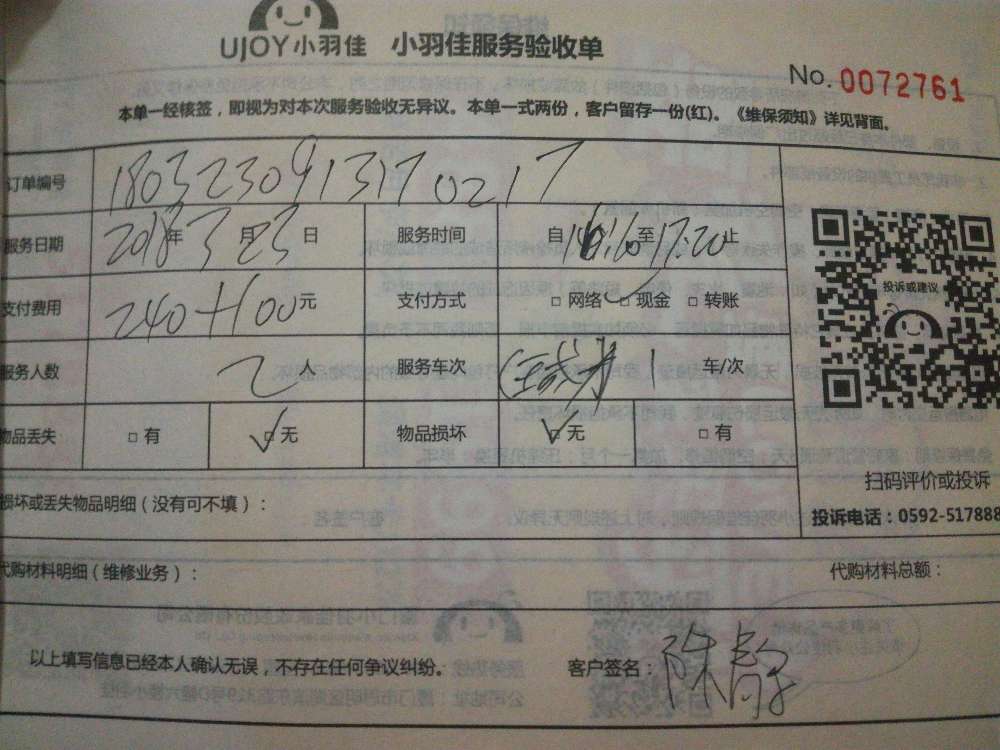 UJOY小羽佳 小羽佳服务验收单
No. 0072761
本单一经核签，即视为对本次服务验收无异议。本单一式两份，客户留存一份(红)。《维保须知》详见背面。
订单编号 180323091317 0217
服务日期 2018年3月23日 服务时间 自 至17:20止
支付费用 240+100元 支付方式 □网络 □现金 □转账
投诉或建议
服务人数 2人 服务车次 1 车/次
物品丢失 □有 ✓□无 物品损坏 ✓□无 □有
扫码评价或投诉
损坏或丢失物品明细（没有可不填）：
投诉电话：0592-517888
代购材料明细（维修业务）： 代购材料总额：
以上填写信息已经本人确认无误，不存在任何争议纠纷。 客户签名：陈静